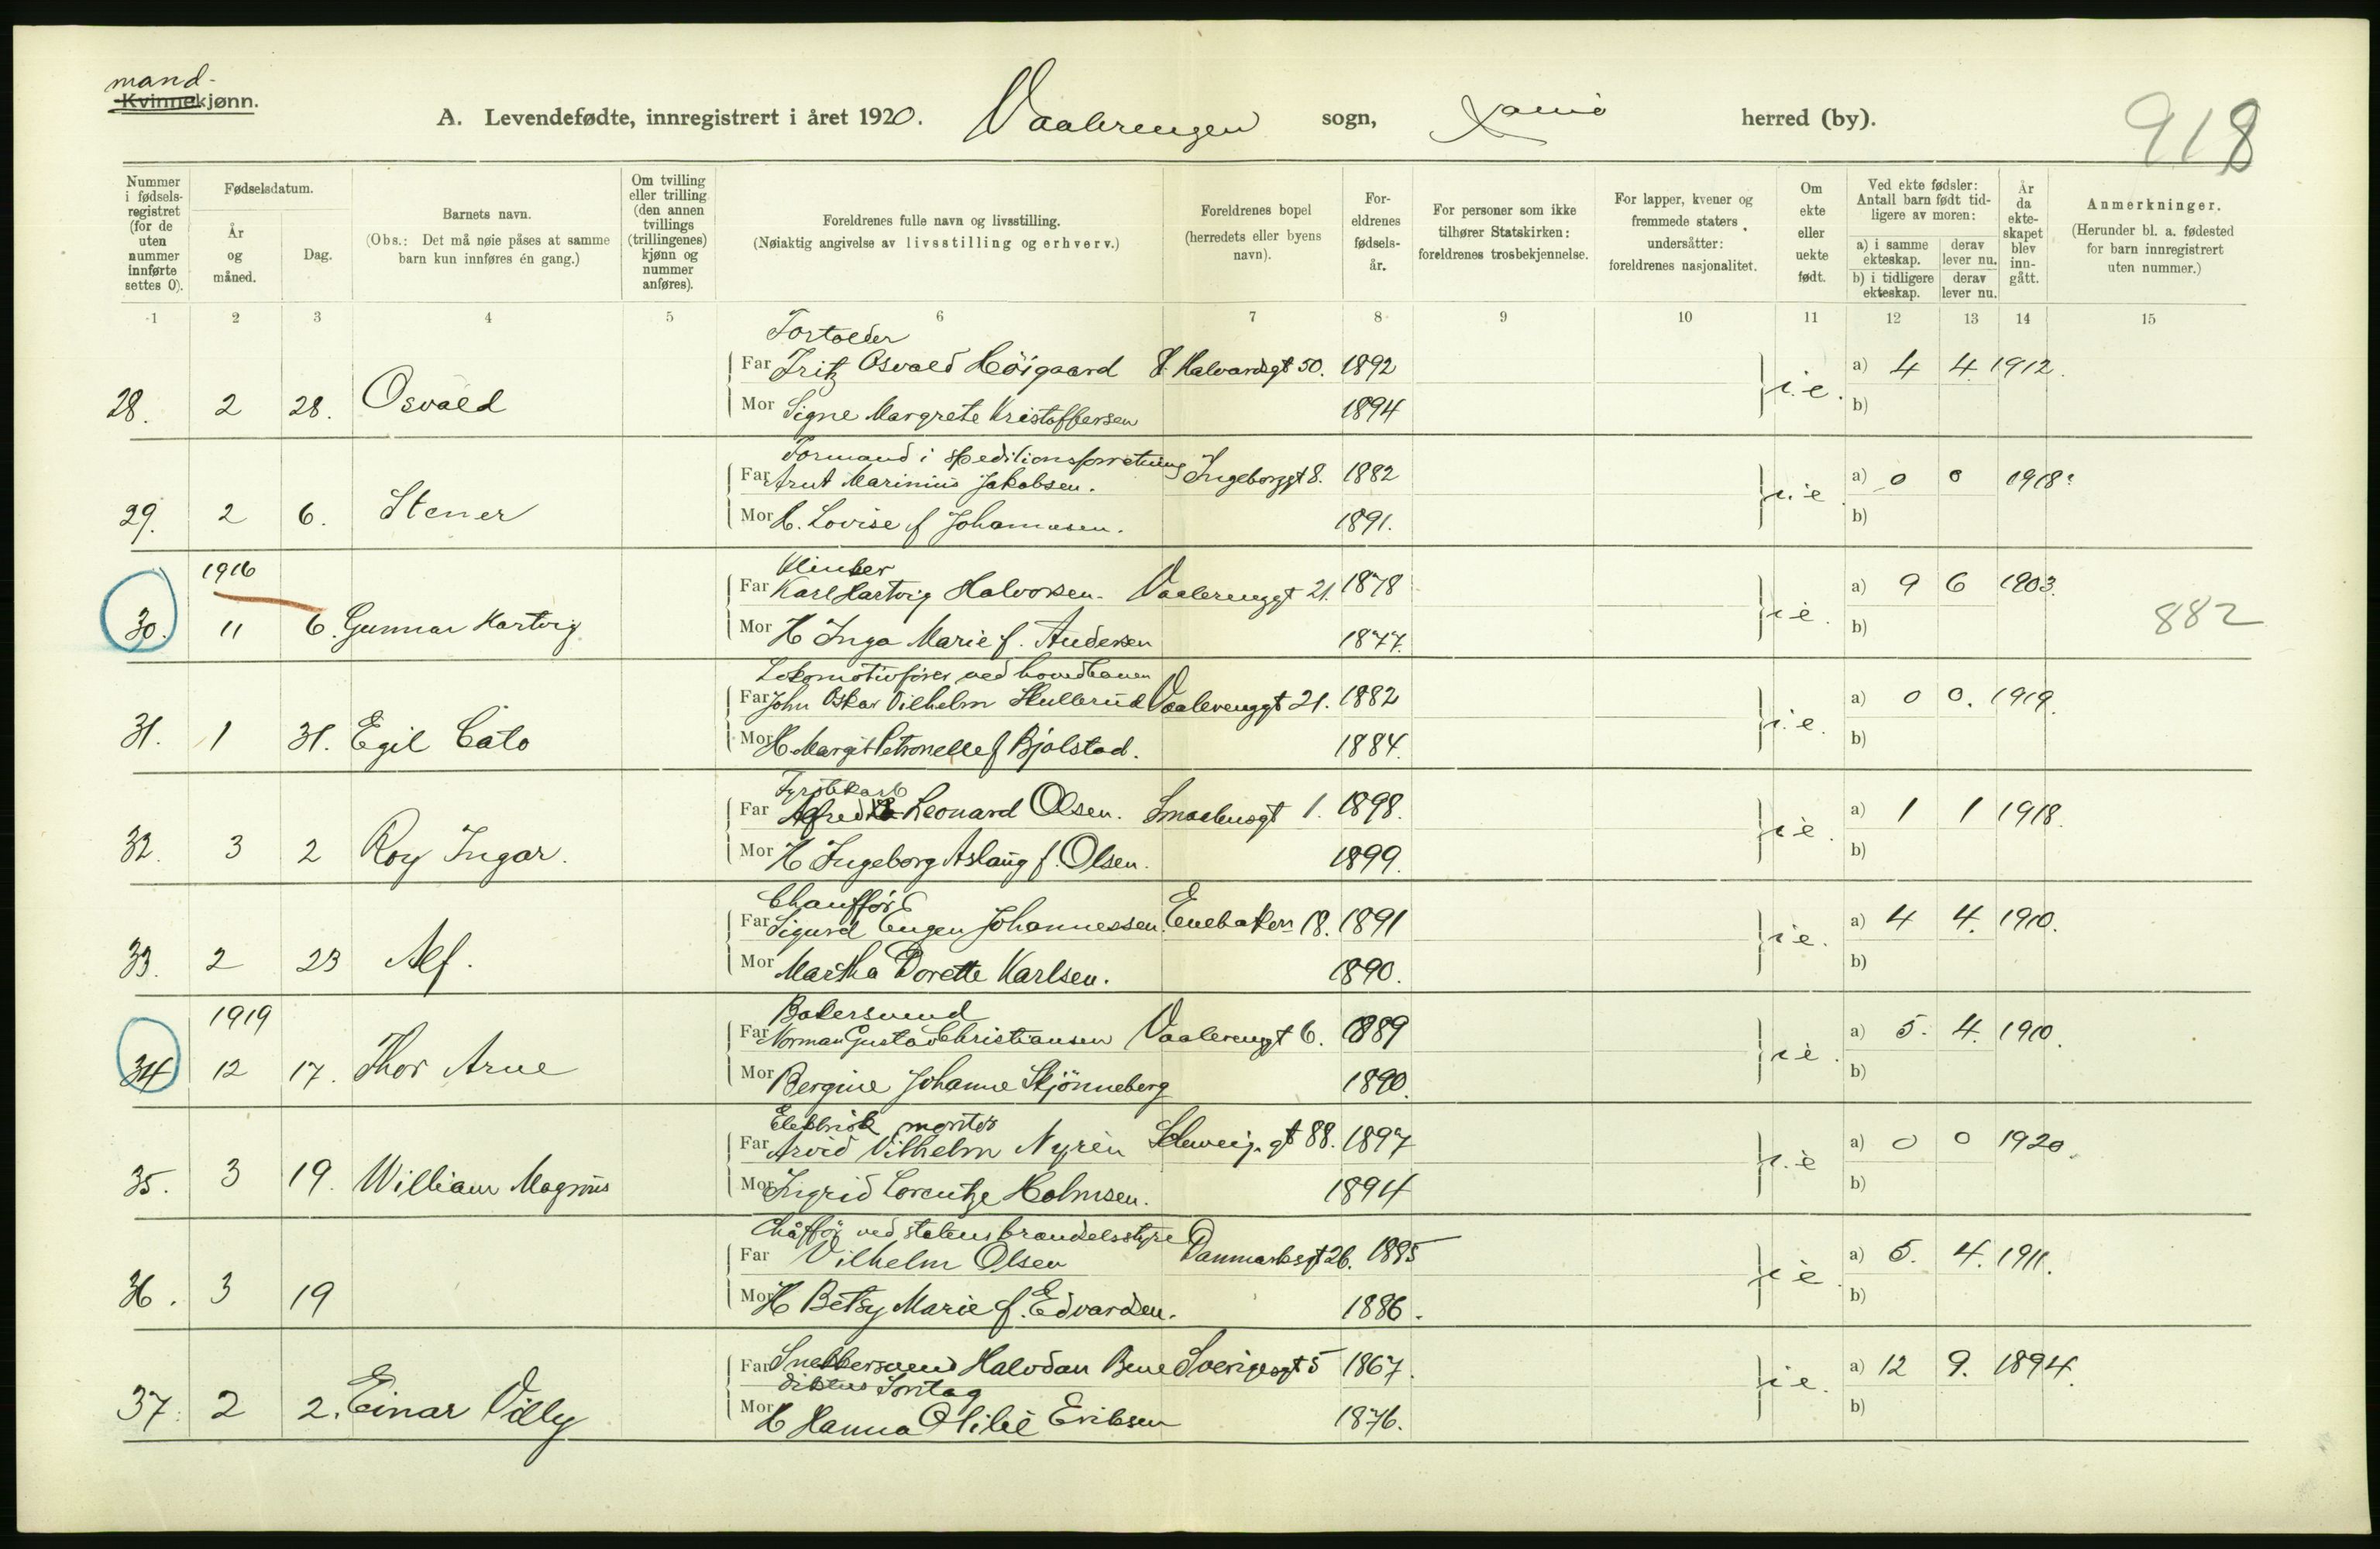 mand-
Kvinnekjønn.
A. Levendefødte, innregistrert i året 1920. Vaalerengen sogn, herred (by).
918
Nummer i fødsels-registret (for de uten nummer innførte settes 0).
Fødselsdatum.
År og måned.
Dag.
Barnets navn.
(Obs.: Det må nøie påses at samme barn kun innføres én gang.)
Om tvilling eller trilling (den annen tvillings (trillingenes) kjønn og nummer anføres).
Foreldrenes fulle navn og livsstilling.
(Nøiaktig angivelse av livsstilling og erhverv.)
Foreldrenes bopel (herredets eller byens navn).
For-eldrenes fødsels-år.
For personer som ikke tilhører Statskirken: foreldrenes trosbekjennelse.
For lapper, kvener og fremmede staters undersåtter: foreldrenes nasjonalitet.
Om ekte eller uekte født.
Ved ekte fødsler: Antall barn født tid-ligere av moren:
a) i samme ekteskap.
derav lever nu.
b) i tidligere ekteskap.
derav lever nu.
År da ekte-skapet blev inn-gått.
Anmerkninger.
(Herunder bl. a. fødested for barn innregistrert uten nummer.)
1 2 3 4 5 6 7 8 9 10 11 12 13 14 15
Fortolder
Far Fritz Osvald Höigaard St. Halvardsgt 50. 1892 a) 4 4 1912.
28. 2 28. Osvald i.e.
Mor Signe Margrete Kristoffersen 1894 b)
Formand i speditionsforretning
Far Arnt Marinius Jakobsen. Ingeborggt 8. 1882 a) 0 0 1918.
29. 2 6. Stener i.e
Mor H. Lovise f Johannesen. 1891. b)
1916
Klinker
Far Karl Hartvig Halvorsen. Vaalerenggt 21. 1878 a) 9 6 1903.
30. 11 6. Gunnar Hartvig i.e. 882
Mor H Inga Marie f. Andersen 1877. b)
Lokomotivfører ved hovedbanen
Far John Oskar Vilhelm Skullerud Vaalerenggt 21. 1882 a) 0 0. 1919.
31. 1 31. Egil Cato i.e.
Mor H. Margit Petronelle f Bjølstad. 1884. b)
Fyrbøkarl
Far Alfred Leonard Olsen. Smaalensgt 1. 1898. a) 1 1 1918.
32. 3 2 Roy Ingar. i.e.
Mor H Ingeborg Aslaug f. Olsen. 1899. b)
Chauffør
Far Sigurd Eugen Johannessen. Enebakvn 18. 1891 a) 4 4. 1910.
33. 2 23 Alf. i.e.
Mor Martha Dorette Karlsen. 1890. b)
1919
Bakersvend
Far Norman Gustav Christiansen Vaalerengt 6. 1889 a) 5. 4. 1910.
34 12 17. Thor Arne i.e.
Mor Bergine Johanne Skjönneberg 1890. b)
Elektrisk montør
Far Arvid Vilhelm Nyrèn Schweig.gt 88. 1897 a) 0 0 1920.
35. 3 19. William Magnus i.e
Mor Ingrid Lorentze Holmsen. 1894 b)
Chåffør ved statens brændelsstyre
Far Vilhelm Olsen Danmarksgt 26. 1885 a) 5. 4. 1911.
36. 3 19 i.e.
Mor H Betsy Marie f. Edvardsen. 1886. b)
Far Snekkersvend Halvdan Bene Sverigesgt 5 1867. a) 12 9. 1894.
diktus
37. 2 2. Einar Villy i.e.
Mor H Hanna Otilie Eriksen 1876. b)